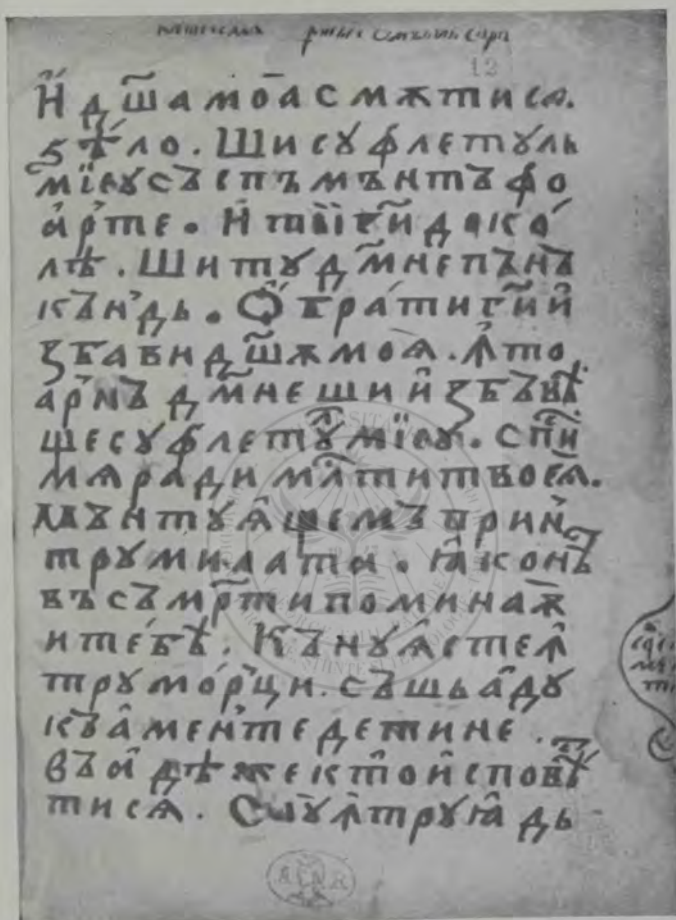 12
И҆ дш҃а моѧ смѫтисѧ.
ѕѣло. Шисꙋфлетꙋль
мїеꙋ съ спъмънтъ фо
арте. И ты г҃и доко
лѣ. Шитꙋ дм҃не пънъ
кѫндь. Ѻбратиг҃и и
ꙁбави дш҃ѫ моѧ. Ꙟто
арнъ дм҃не ши иꙁбъвѣ
ще сꙋфлетꙋ мїеꙋ. Сп҃и
мѧ ради млт҃и твоеѧ.
Мънтꙋꙗще мъ прин
трꙋ мила та. Ꙗко нѣ
въ съмрт҃и поминаѫ
и тебѣ. Къ нꙋ ꙗсте ꙟ
трꙋ морци. съшь адꙋ
къ аменте де тине.
въ адѣ же кто исповѣ
тисѧ. Сѡꙋ ꙟтрꙋ ꙗдь